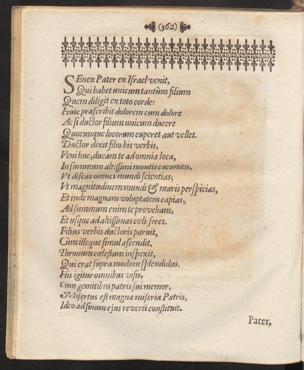 (362)
SEnex Pater ex Israel venit,
Qui habet unicum tantùm filium
Quem diligit ex toto corde:
Huic præscribit dolorem cum dolore
Ac si ductor filium unicum ducere
Quocunque locorum cuperet aut vellet.
Ductor dixit filio his verbis,
Veni huc, ducam te ad omnia loca,
In summum altissimi montis cacumen,
Vt discas omnes mundi scientias;
Vt magnitudinem mundi & maris perspicias,
Et inde magnam voluptatem capias,
Ad summum enim te proveham,
Et usque ad altissimas cœli fores.
Filius verbis ductoris paruit,
Cum illo que simul ascendit,
Thronum cælestem inspexit,
Qui erat supra modum splendidus.
His igitur omnibus visis,
Cum gemitibus patris sui memor,
Misertus est magnæ miseriæ Patris,
Ideo ad suum ejus reverti constituit.
Pater,